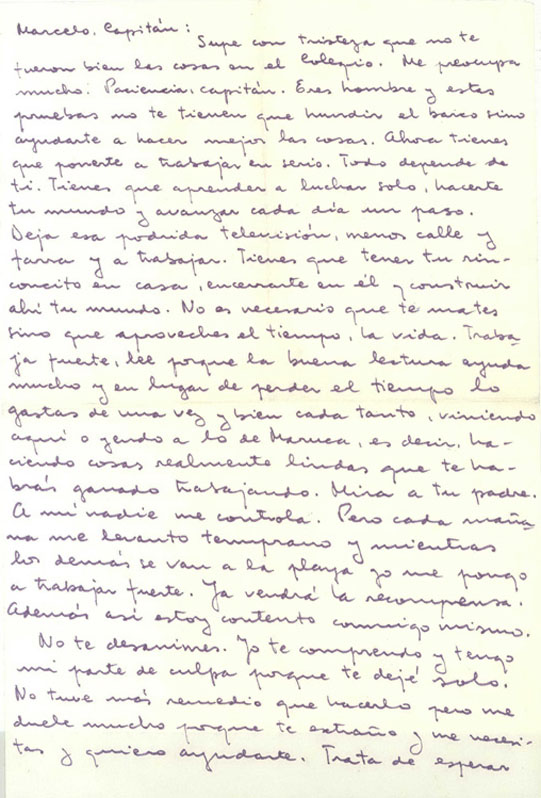 Marcelo. Capitán:
Supe con tristeza que no te
fueron bien las cosas en el Colegio. Me preocupa
mucho. Paciencia, capitán. Eres hombre y estas
pruebas no te tienen que hundir el barco sino
ayudarte a hacer mejor las cosas. Ahora tienes
que ponerte a trabajar en serio. Todo depende de
ti. Tienes que aprender a luchar solo, hacerte
tu mundo y avanzar cada día un paso.
Deja esa podrida televisión, menos calle y
farra y a trabajar. Tienes que tener tu rin-
concito en casa, encerrarte en él y construir
ahí tu mundo. No es necesario que te mates
sino que aproveches el tiempo, la vida. Traba-
ja fuerte, lée porque la buena lectura ayuda
mucho y en lugar de perder el tiempo lo
gastas de una vez y bien cada tanto, viniendo
aquí o yendo a lo de Maruca, es decir, ha-
ciendo cosas realmente lindas que te ha-
brás ganado trabajando. Mira a tu padre.
A mí nadie me controla. Pero cada maña-
na me levanto temprano y mientras
los demás se van a la playa yo me pongo
a trabajar fuerte. Ya vendrá la recompensa.
Además así estoy contento conmigo mismo.
No te desanimes. Yo te comprendo y tengo
mi parte de culpa porque te dejé solo.
No tuve más remedio que hacerlo pero me
duele mucho porque te extraño y me necesi-
tas y quiero ayudarte. Trata de esperar